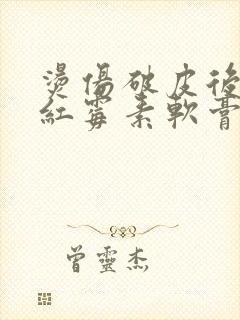 燙傷破皮後
紅霉素軟膏
曾靈杰